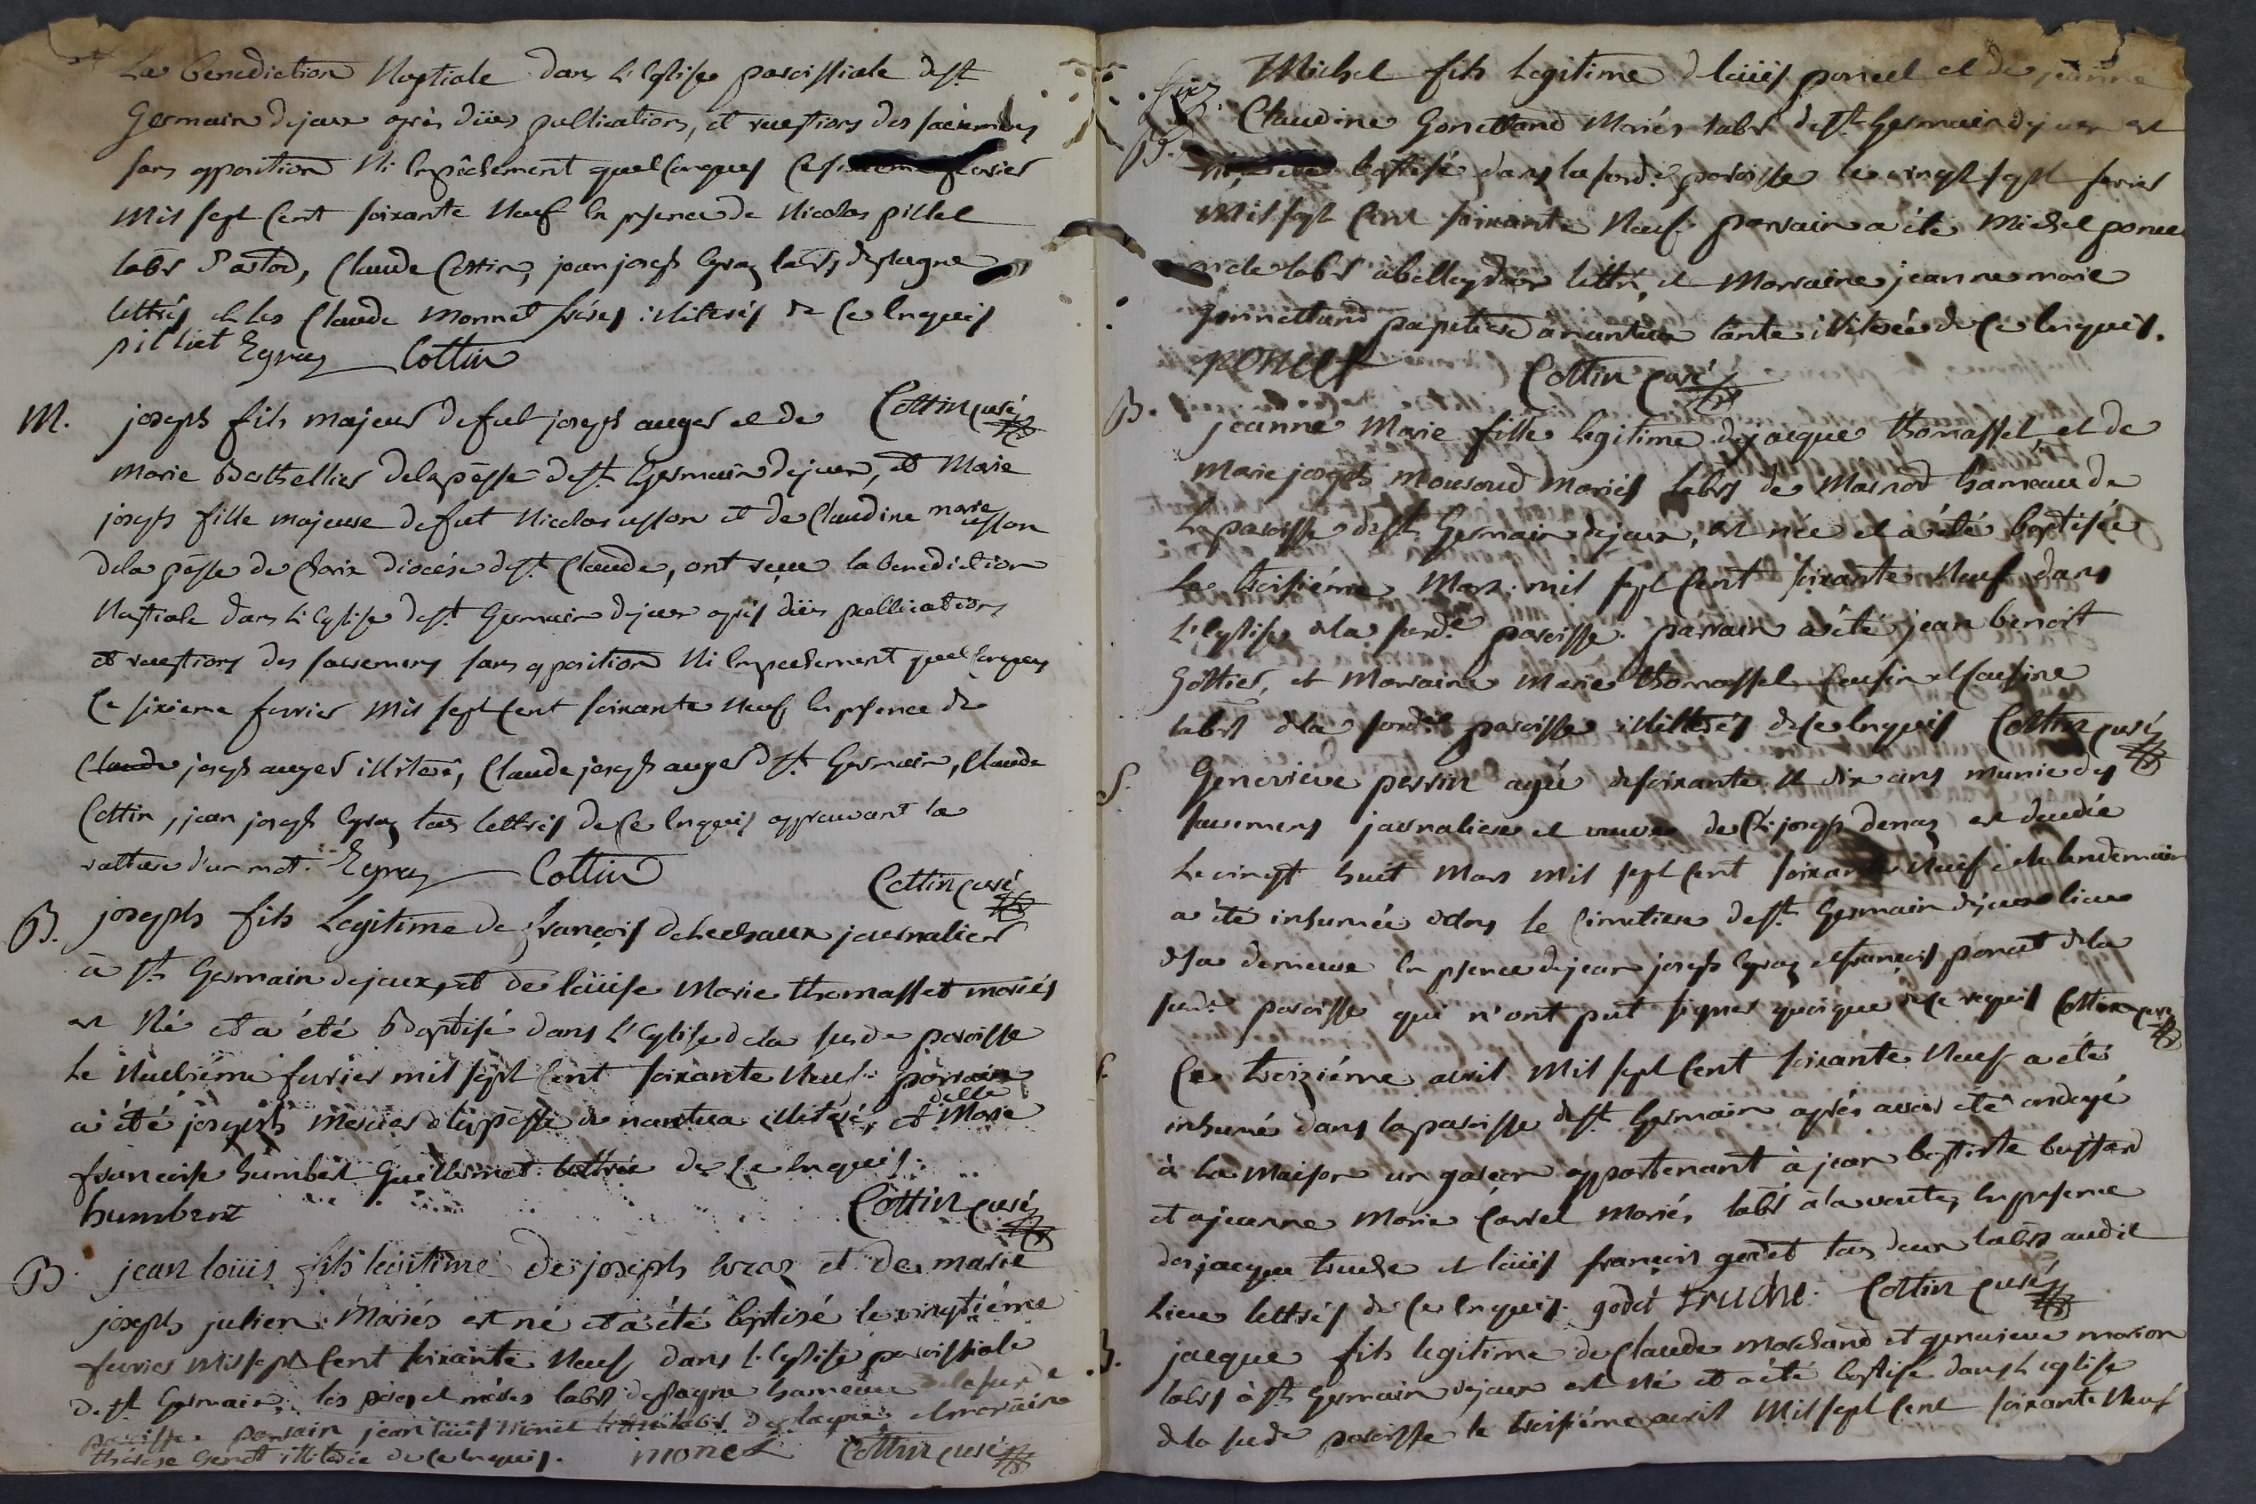 La benediction Nuptiale dans L'Eglise paroissiale de st
Germain dejoux après düës publications, et receptions des sacremens
sans opposition Ni Empêchement quelconques Ce sixieme fevrier
Mil sept Cent soixante Neuf En psence de Nicolas pillet
labr Claude Cottin, jean joseph Egraz labrs
lettrés et les Claude Monnet freres illiterés de Ce Enquis
pilliet Egraz Cottin
Cottin curé
M. joseph fils majeur de fut joseph auger et de
Marie Barthellier de la pésse de st. Germain dejoux, et Marie
joseph fille majeure de fut Nicolas usson et de Claudine marie usson
de la pésse de Choix diocése de st. Claude, ont reçu la benediction
Nuptiale dans L'Eglise de st. Germain dejoux après düës publications
et receptions des sacremens sans opposition Ni Empechement quelconques
Ce sixieme fevrier Mil sept Cent soixante Neuf, En psence de
Claude joseph auger illiteré, Claude joseph auger de st. Germain, Claude
Cottin, jean joseph Egraz tous lettrés de Ce Enquis approuvant la
rature d'un mot. Egraz Cottin
Cottin curé
B. joseph fils Legitime de françois journalier
à st. Germain dejoux, et de loüise Marie thomasset mariés
est Né et a été Baptisé dans L'Eglise de la susde paroisse
Le Neuvieme fevrier mil sept Cent soixante Neuf. parrain
a été joseph Mercier de la pésse de nantua illiteré, et delle Marie
francoise humbert Guillermet lettrée de Ce Enquis.
humbert
Cottin curé
B. jean loüis fils legitime de joseph et de marie
joseph julien Mariés est né et a été baptisé le vingtiéme
fevrier Mil sept Cent soixante Neuf dans L'Eglise paroissiale
de st Germain, les pere et mére labrs hameau de la susde
paroisse parrain jean loüis monet labr et marraine
thérèse Genot illiterée de Ce Enquis. monet Cottin curé
Michel fils Legitime de loüis poncet et de jeanne
Claudine Gonetland Mariés labrs de st. Germain dejoux est
B. né, baptisé dans la susde paroisse le vingt sept fevrier
Mil sept Cent soixante Neuf. parrain a été Michel poncet
oncle labr à belleydoux lettré, et Marraine jeanne marie
Gonnetland papetiere à nantua tante illiterée de Ce Enquis.
poncet
Cottin curé
B. jeanne Marie fille Legitime de jacque thomasset et de
Marie joseph Mousoud Mariés labrs de Marnod hameau de
La paroisse de st. Germain dejoux, est née et a été baptisée
Le troisiéme Mars mil sept Cent soixante Neuf dans
L'Eglise de la susde paroisse. parrain a été jean benoit
Gottier, et Marraine Marie thomasset Cousin et Cousine
labrs de la susde paroisse illiterés de Ce Enquis Cottin curé
S. Geneviéve perrin agée de soixante et dix ans munie des
sacremens journaliere et veuve de Cl. joseph denaz est decedée
Le vingt huit Mars Mil sept Cent soixante Neuf et le lendemain
a été inhumée dans le Cimetiere de st. Germain dejoux lieu
de sa demeure En psence de jean joseph Egraz et françois poncet de la
susde paroisse qui n'ont put signer quoique de Ce requis Cottin curé
S. Ce treiziéme avril Mil sept Cent soixante Neuf a été
inhumé dans la paroisse de st. Germain après avoir été ondoyé
à la Maison un garçon appartenant à jean baptiste bussod
et a jeanne Marie Carrel Mariés labrs à la voute, En presence
de jacque truche et loüis françois godet tous deux labrs audit
Lieu lettrés de Ce Enquis. godet truche. Cottin curé
B. jacque fils legitime de Claude Marchand et genevieve marion
labrs à st. Germain dejoux est Né et a été baptisé dans L'eglise
de la susde paroisse le troisiéme avril Mil sept Cent soixante Neuf